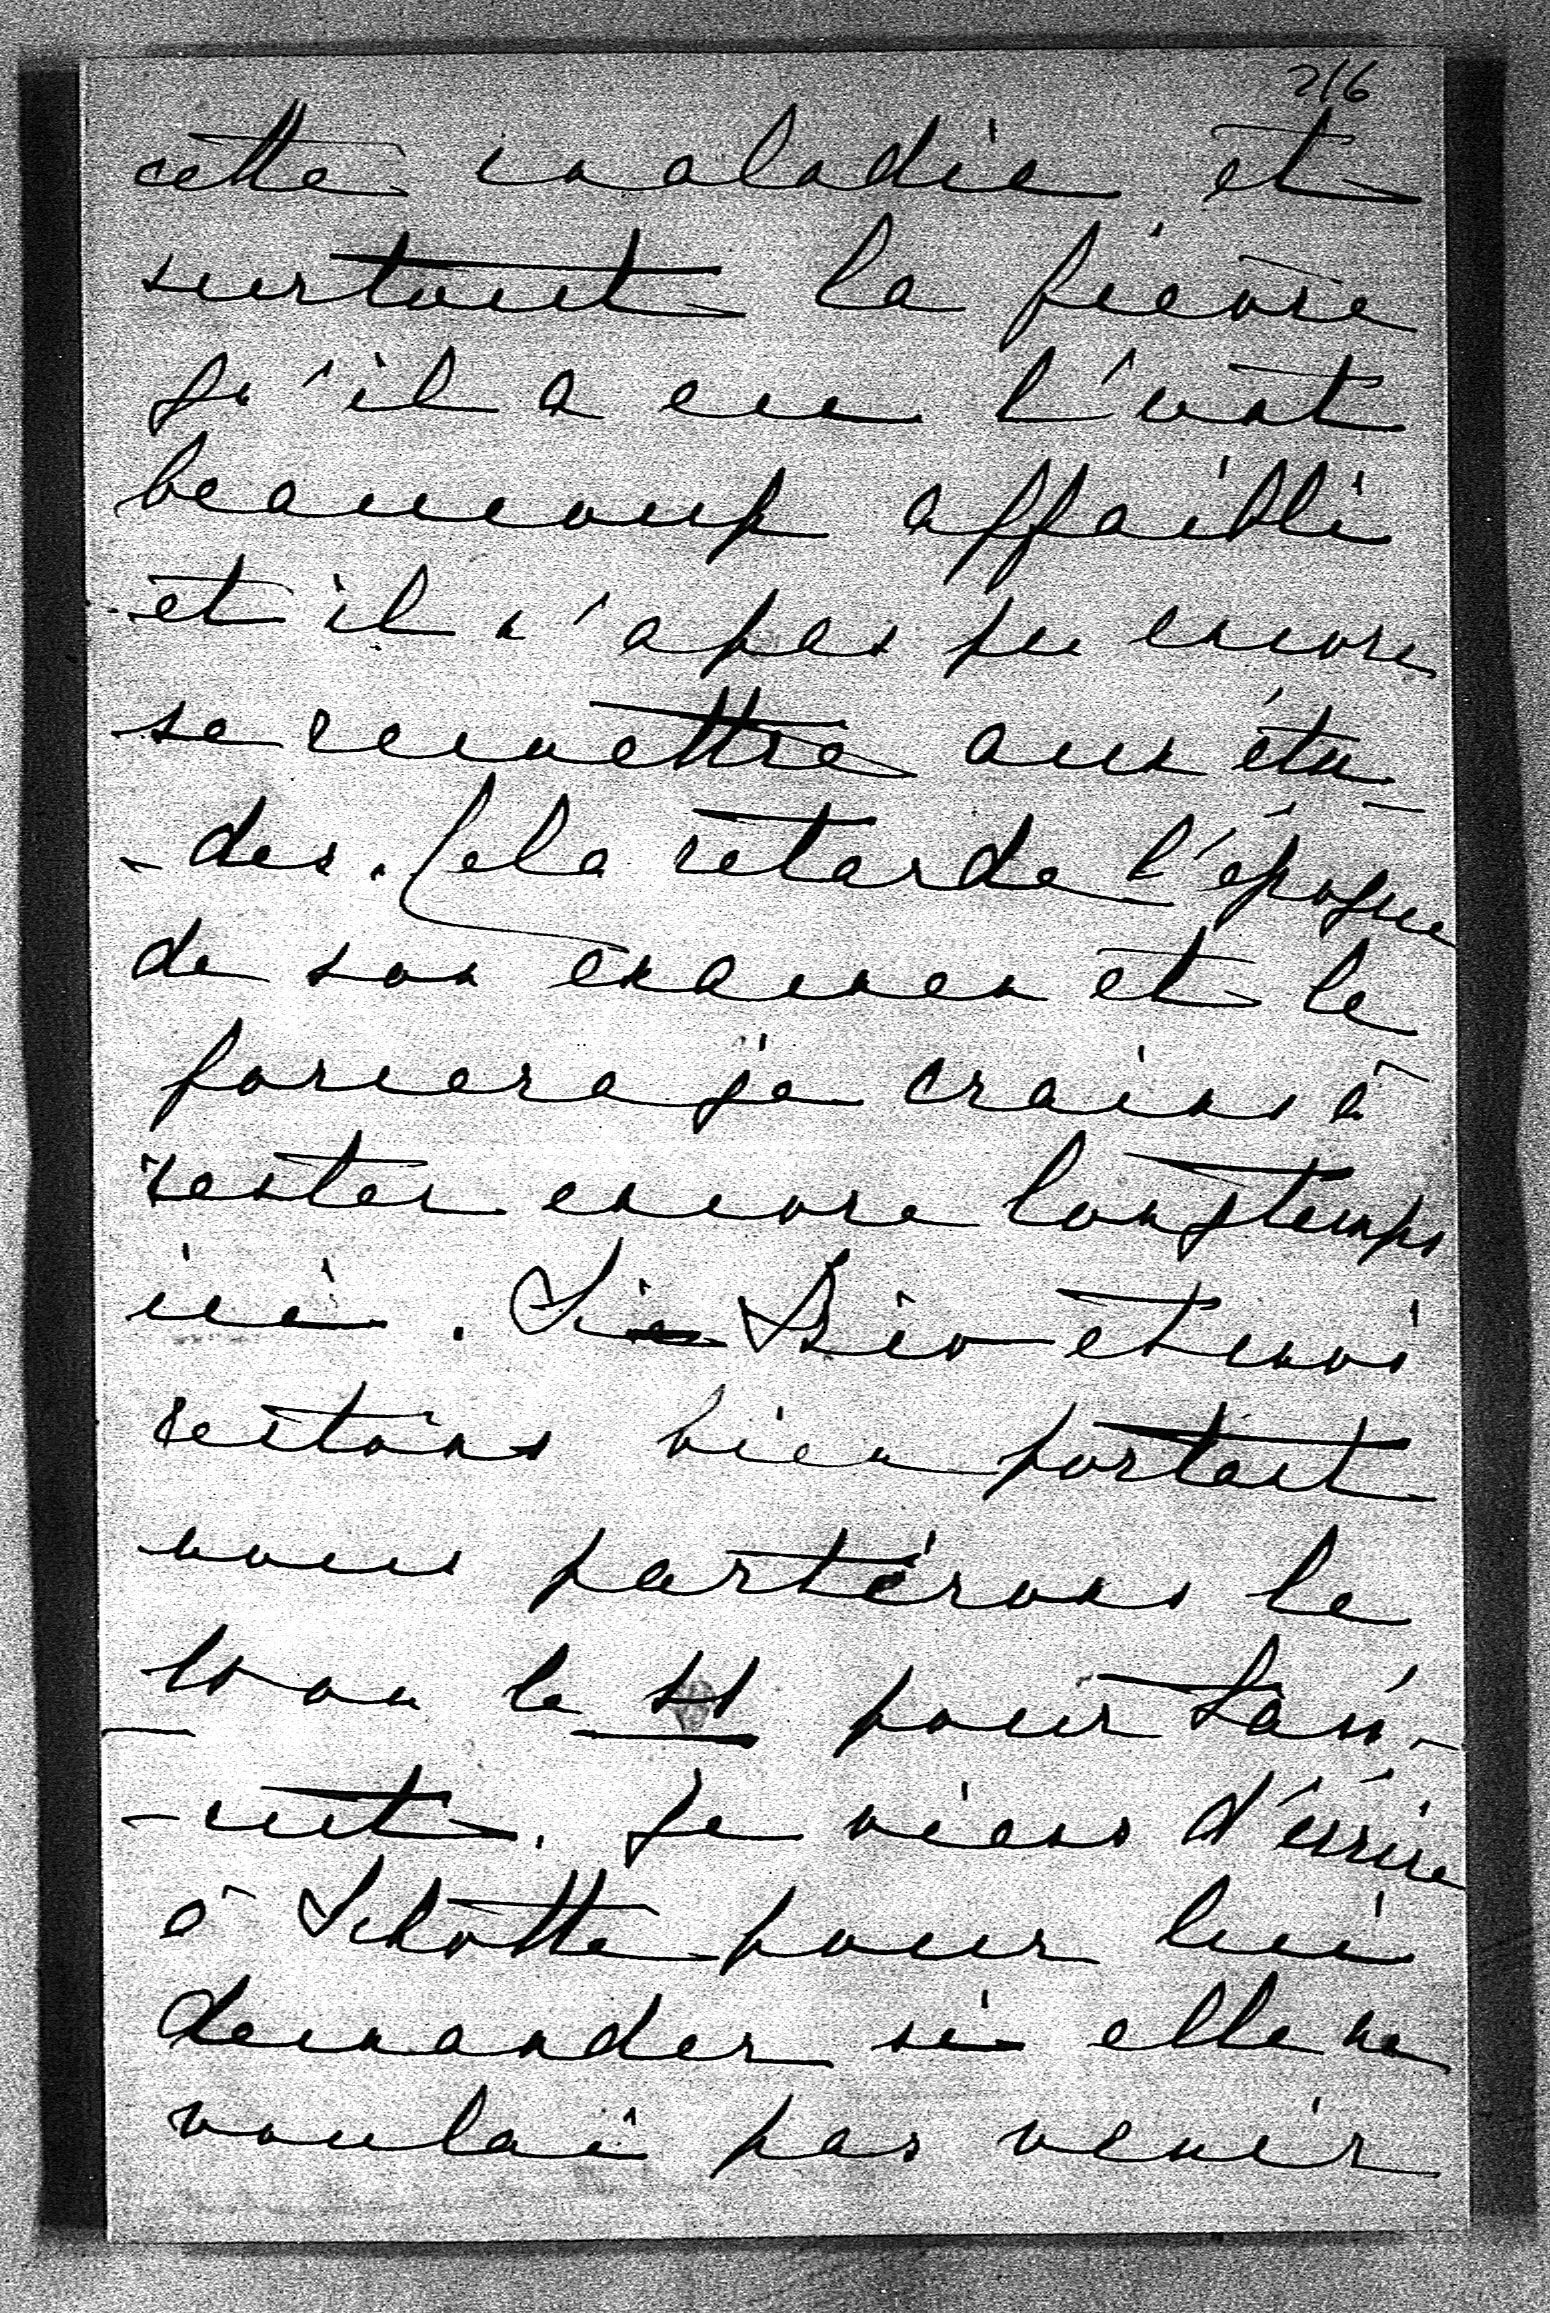 216
cette maladie et
surtout la fièvre
qu'il a eue l'ont
beaucoup affaibli
et il n'a pas pu encore
se remettre aux étu-
-des. Cela retarde l'époque
de son examen et le
forcera je crains à
rester encore longtemps
ici. Si et moi
restons bien portant
nous partirons le
le pour
Je viens d'écrire
à pour lui
demander si elle ne
voulai pas venir